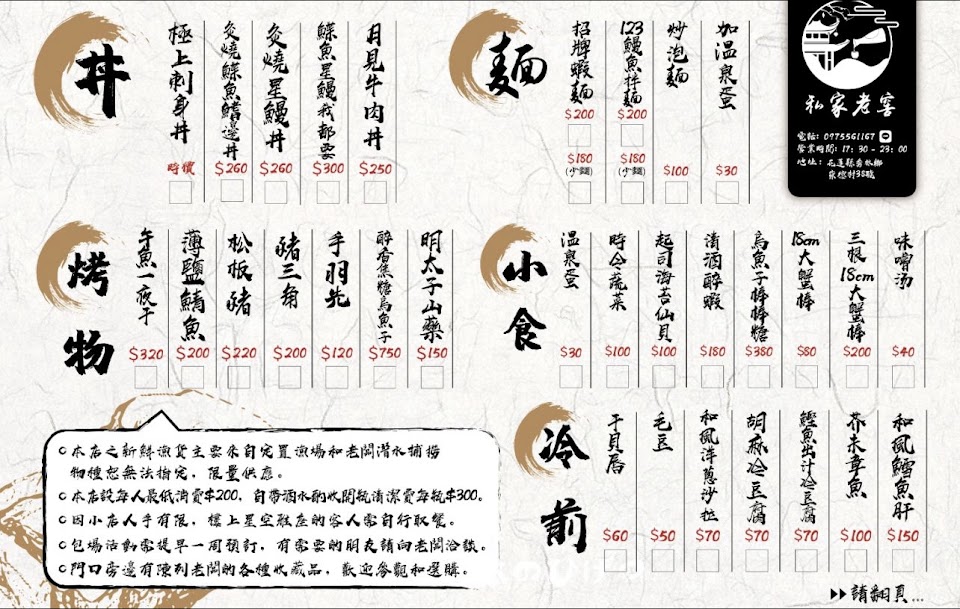 丼
極上刺身丼
時價
炙燒鰈魚鰭邊丼
$260
炙燒星鰻丼
$260
鰈魚星鰻我都要
$300
月見牛肉丼
$250
麵
招牌蝦麵
$200
$180
(少麵)
123鰻魚拌麵
$200
$180
(少麵)
炒泡麵
$100
加溫泉蛋
$30
私家老窖
電話: 0975561167
營業時間: 17:30-23:00
地址: 花蓮縣秀林鄉
崇德村38號
烤物
午魚一夜干
$320
薄鹽鯖魚
$200
松板豬
$220
豬三角
$200
手羽先
$120
醉香焦糖烏魚子
$750
明太子山藥
$150
小食
溫泉蛋
$30
時令蔬菜
$100
起司海苔仙貝
$100
清酒醉蝦
$180
烏魚子棒棒糖
$380
18cm大蟹棒
$80
三根18cm大蟹棒
$200
味噌汤
$40
冷前
干貝唇
$60
毛豆
$50
和風洋蔥沙拉
$70
胡麻冷豆腐
$70
鰹魚出汁冷豆腐
$70
芥末章魚
$100
和風鱈魚肝
$150
本店之新鮮漁貨主要來自定置漁場和老闆潛水捕撈
物種恕無法指定，限量供應。
本店設每人最低消費$200，自帶酒水酌收開瓶清潔費每瓶$300。
因小店人手有限，樓上星空雅座的客人需自行取餐。
包場活動需提早一周預訂，有需要的朋友請向老闆洽談。
門口旁邊有陳列老闆的各種收藏品，歡迎參觀和選購。
請翻頁...